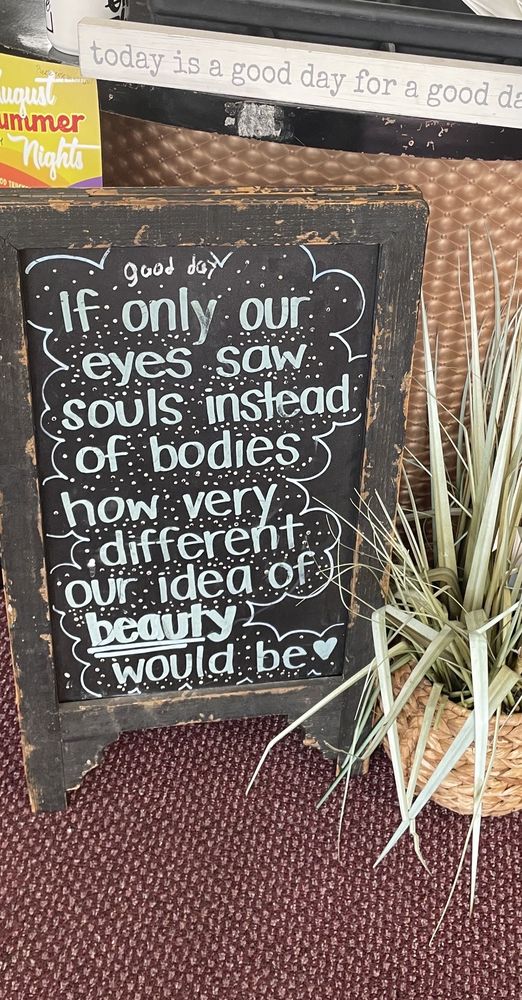 today is a good day for a good da
August
Summer
Nights
good day
If only our
eyes saw
souls instead
of bodies
how very
different
our idea of
beauty
would be